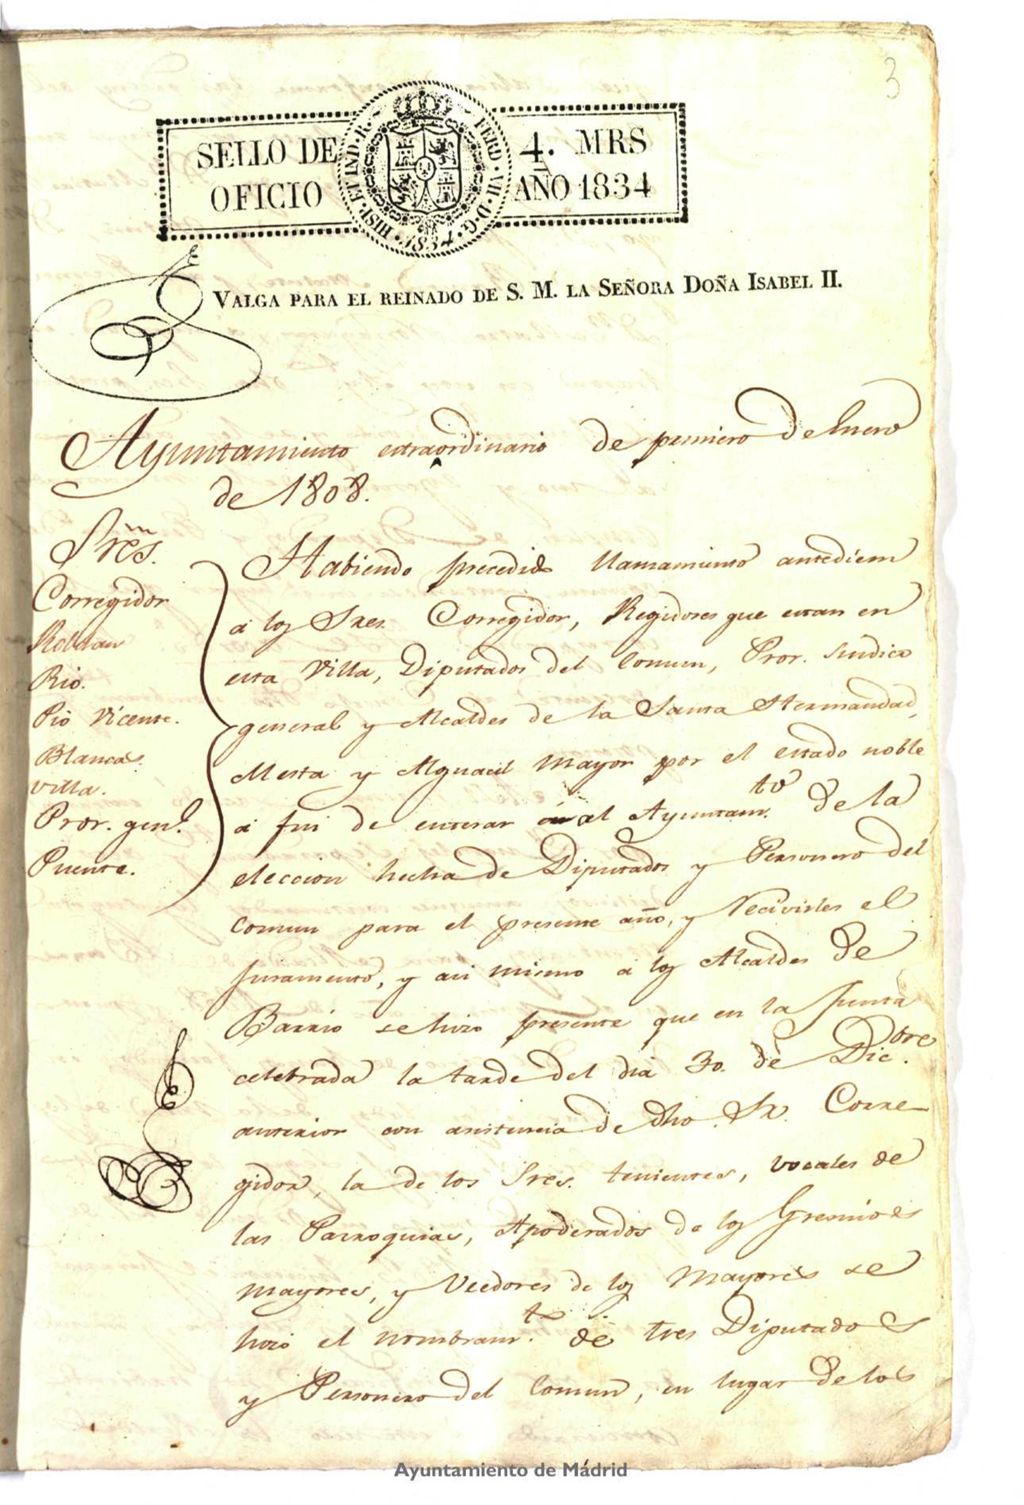 3
SELLO DE OFICIO
HISP. ET IND. R. FERD. VII. D. G. 1834
4. MRS AÑO 1834
VALGA PARA EL REINADO DE S. M. LA SEÑORA DOÑA ISABEL II.
Ayuntamiento extraordinario de primero de Enero
de 1808.
Sres.
Corregidor
Rio.
Pio Vicente.
Blancas.
Villa.
Pror. genl.
Puente.
Habiendo precedido llamamiento antediem
a los Sres. Corregidor, Regidores que estan en
esta Villa, Diputados del Comun, Pror. Sindico
general y Alcaldes de la Santa Hermandad,
Mesta y Alguacil Mayor por el estado noble
a fin de enterar al Ayuntamto. de la
eleccion hecha de Diputados y Personero del
comun para el presente año, y recivirles el
juramento, y asi mismo a los Alcaldes de
Barrio se hizo presente que en la Junta
celebrada la tarde del dia 30. de Dicbre.
anterior con asistencia de dho. Sr. Corre-
gidor, la de los Sres. tenientes, vocales de
las Parroquias, Apoderados de los Gremios
mayores, y Veedores de los Mayores se
hizo el nombramto. de tres Diputados
y Personero del Comun, en lugar de los
Ayuntamiento de Madrid